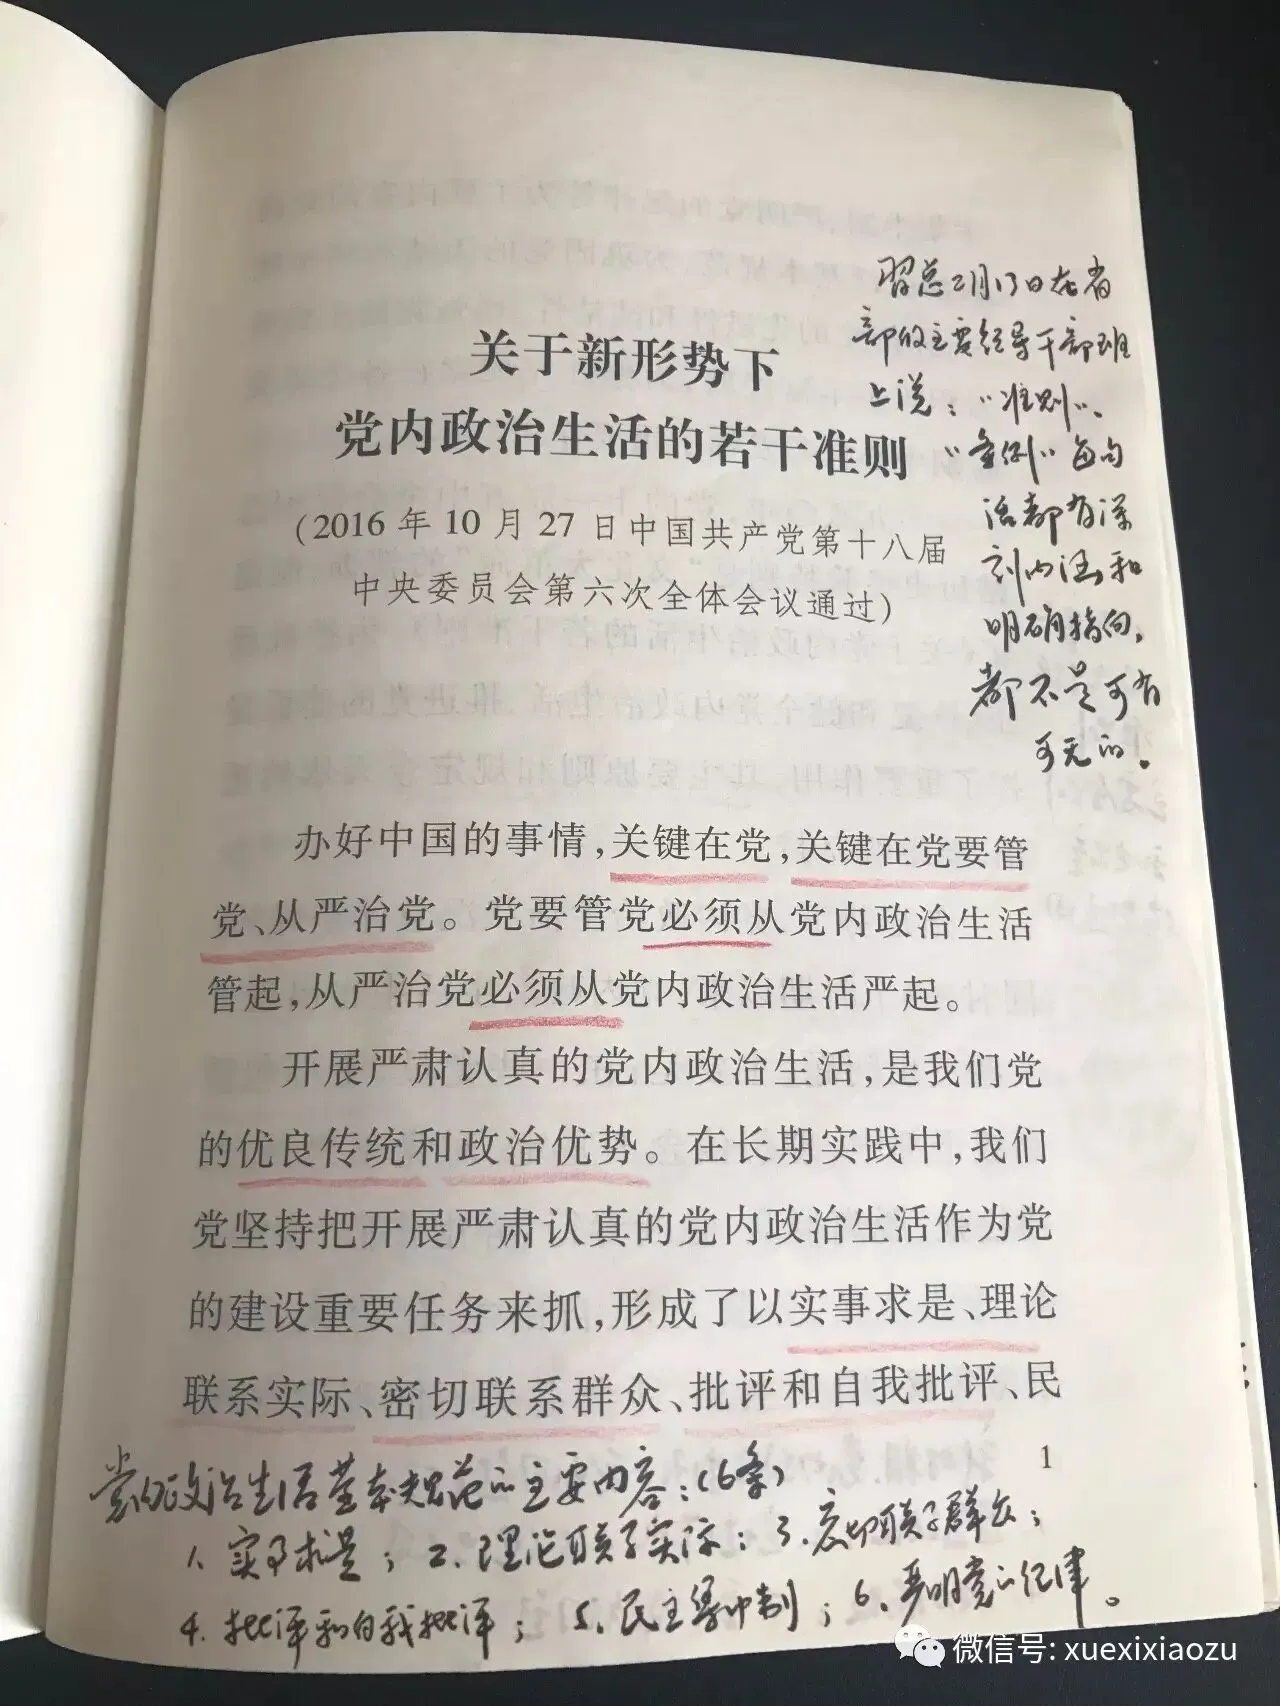 关于新形势下
党内政治生活的若干准则
(2016年10月27日中国共产党第十八届
中央委员会第六次全体会议通过)
习总2月13日在省
部级主要领导干部班
上说："准则"、
"条例"每句
话都有深
刻内涵和
明确指向,
都不是可有
可无的。
办好中国的事情,关键在党,关键在党要管
党、从严治党。党要管党必须从党内政治生活
管起,从严治党必须从党内政治生活严起。
开展严肃认真的党内政治生活,是我们党
的优良传统和政治优势。在长期实践中,我们
党坚持把开展严肃认真的党内政治生活作为党
的建设重要任务来抓,形成了以实事求是、理论
联系实际、密切联系群众、批评和自我批评、民
1
党内政治生活基本规范的主要内容：(6条)
1. 实事求是；2. 理论联系实际；3. 密切联系群众；
4. 批评和自我批评；5. 民主集中制；6. 严明党的纪律。
微信号: xuexixiaozu